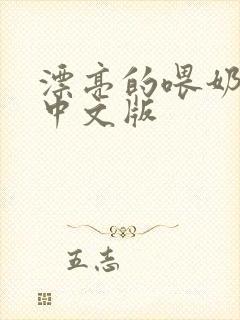 漂亮的喂奶
中文版
五志